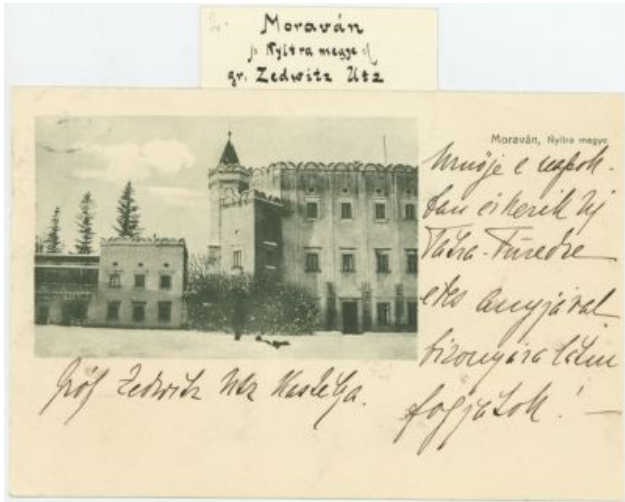 Moraván
Nyitra megye
gr. Zedwitz Utz
Moraván, Nyitra megye
e napok-
ban érkezik Uj
Tátra-Füredre
édes anyjával
bizonyára látni
fogjátok! —
Gróf Zedwitz Utz Kastélya.